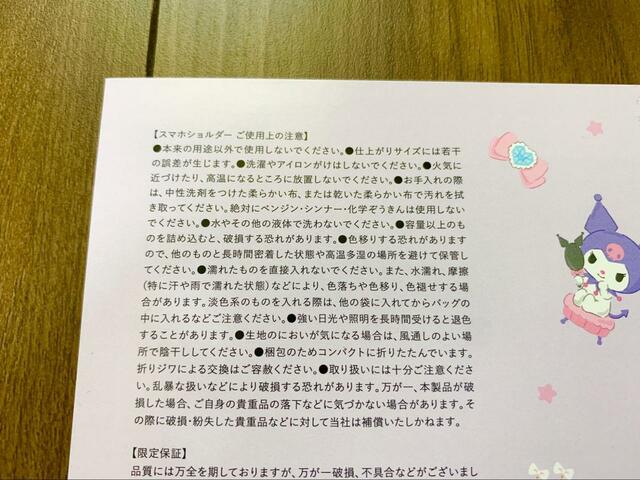 【スマホショルダー ご使用上の注意】
●本来の用途以外で使用しないでください。●仕上がりサイズには若干
の誤差が生じます。●洗濯やアイロンがけはしないでください。●火気に
近づけたり、高温になるところに放置しないでください。●お手入れの際
は、中性洗剤をつけた柔らかい布、または乾いた柔らかい布で汚れを拭
き取ってください。絶対にベンジン・シンナー・化学ぞうきんは使用しない
でください。●水やその他の液体で洗わないでください。●容量以上のも
のを詰め込むと、破損する恐れがあります。●色移りする恐れがあります
ので、他のものと長時間密着した状態や高温多湿の場所を避けて保管し
てください。●濡れたものを直接入れないでください。また、水濡れ、摩擦
(特に汗や雨で濡れた状態)などにより、色落ちや色移り、色褪せする場
合があります。淡色系のものを入れる際は、他の袋に入れてからバッグの
中に入れるなどご注意ください。●強い日光や照明を長時間受けると退色
することがあります。●生地のにおいが気になる場合は、風通しのよい場
所で陰干ししてください。●梱包のためコンパクトに折りたたんでいます。
折りジワによる交換はご容赦ください。●取り扱いには十分ご注意くださ
い。乱暴な扱いなどにより破損する恐れがあります。万が一、本製品が破
損した場合、ご自身の貴重品の落下などに気づかない場合があります。そ
の際に破損・紛失した貴重品などに対して当社は補償いたしかねます。
【限定保証】
品質には万全を期しておりますが、万が一破損、不具合などがございまし